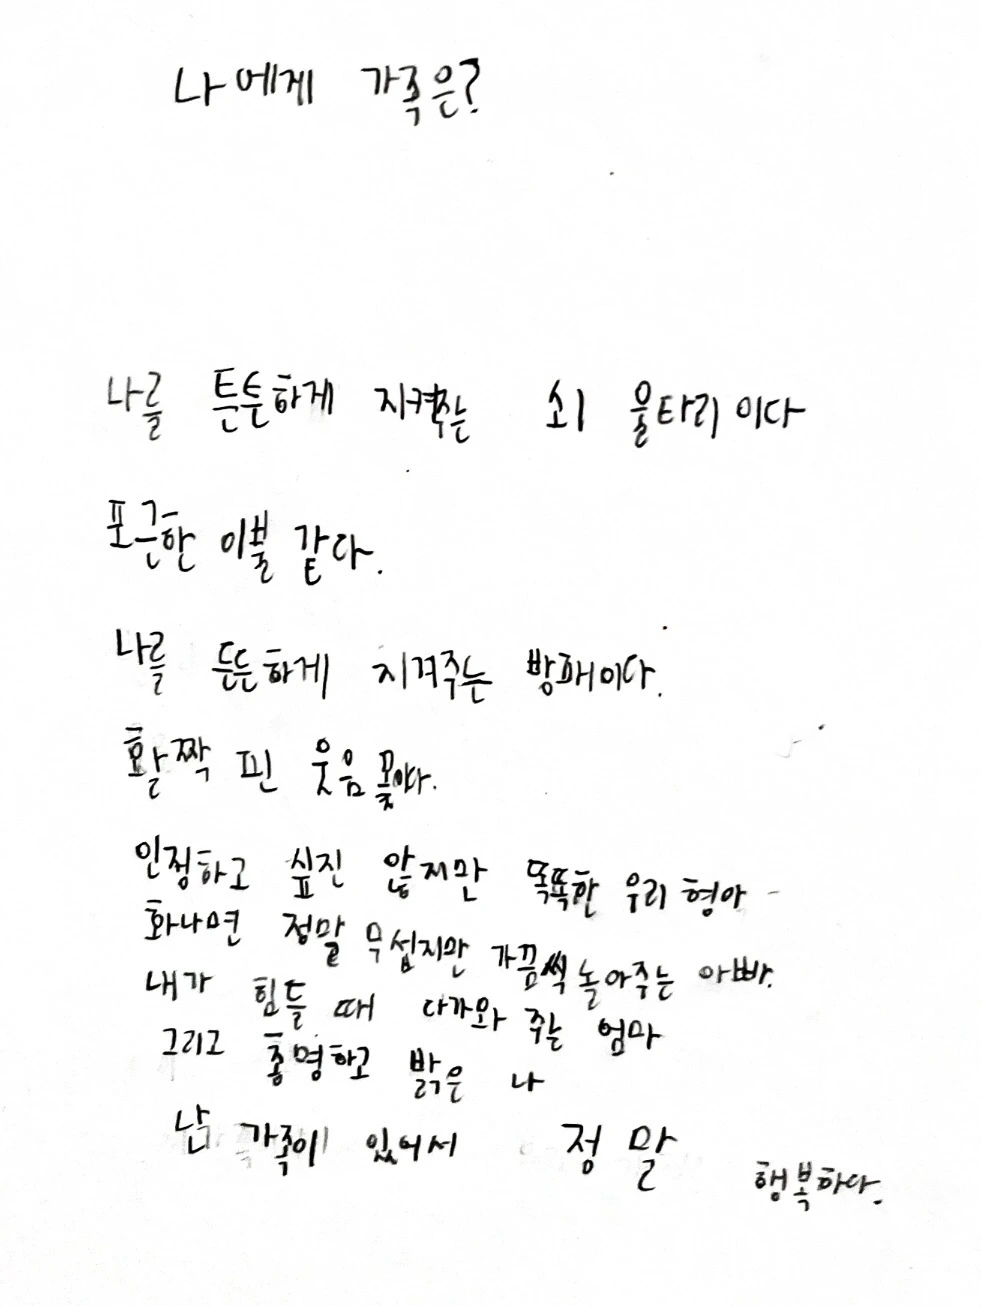 나에게 가족은?
나를 튼튼하게 지켜주는 쇠 울타리이다
포근한 이불 같다.
나를 든든하게 지켜주는 방패이다.
활짝 핀 웃음꽃이다.
인정하고 싶진 않지만 똑똑한 우리 형아
화나면 정말 무섭지만 가끔씩 놀아주는 아빠.
내가 힘들 때 다가와 주는 엄마
그리고 총명하고 밝은 나
난 가족이 있어서 정말 행복하다.